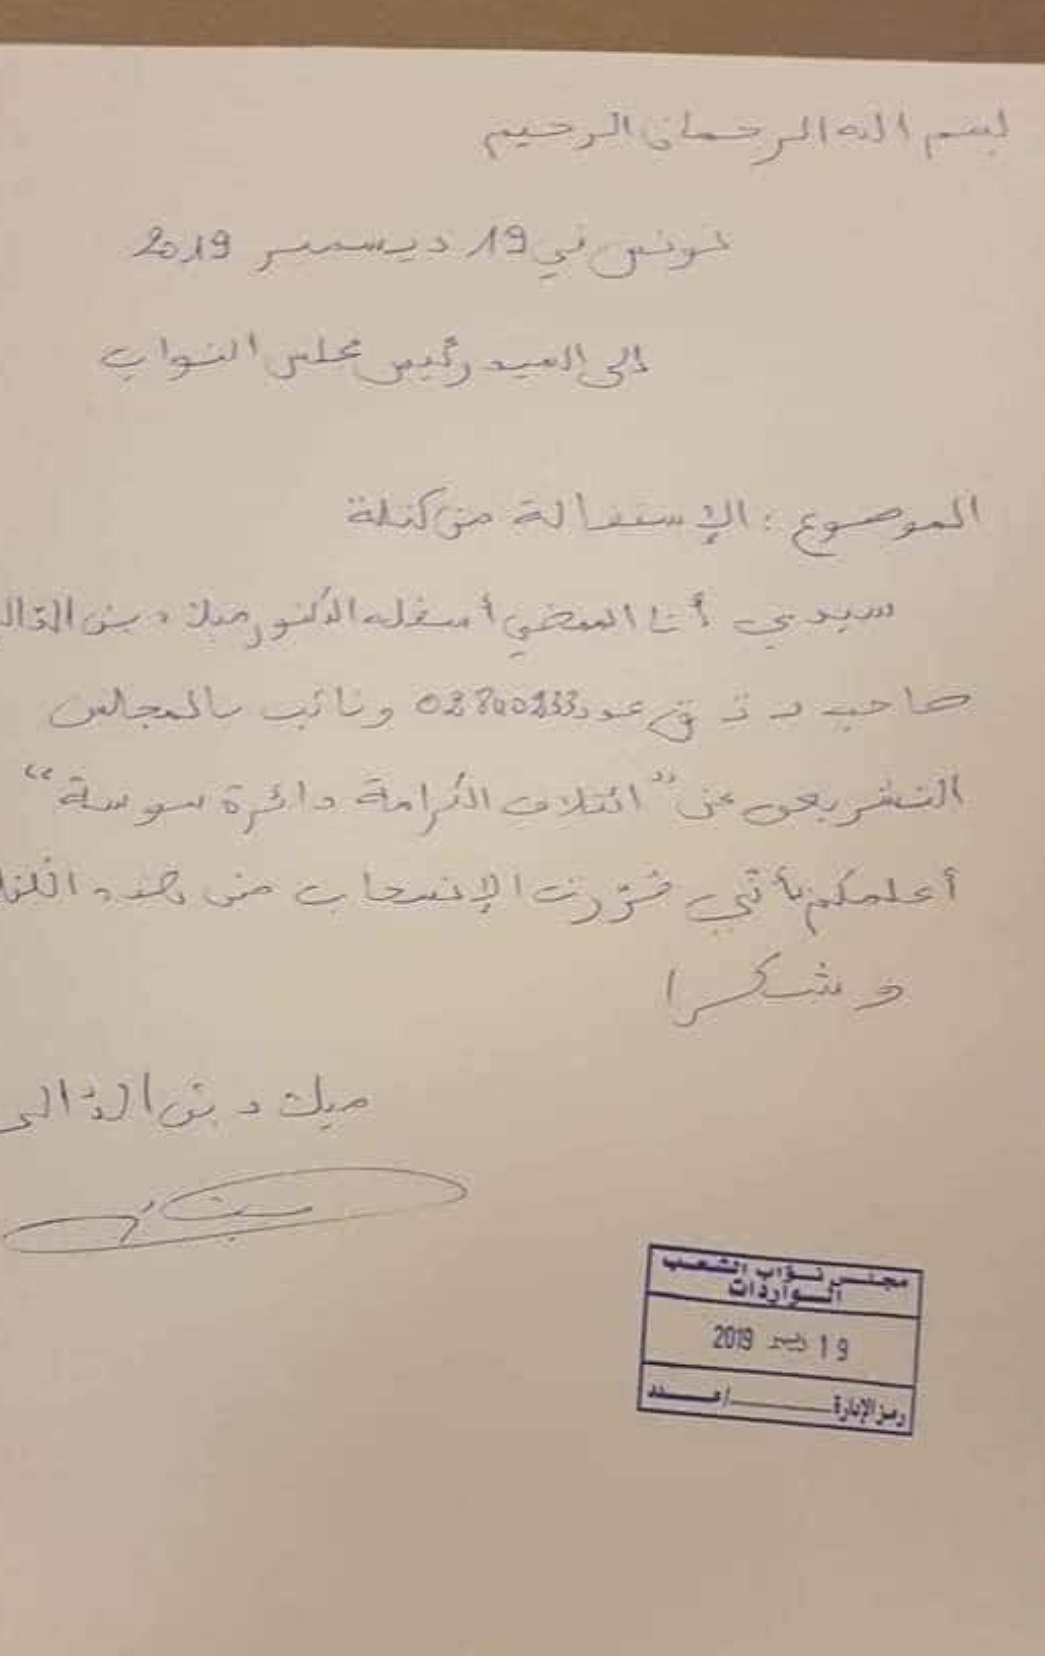 بسم الله الرحمان الرحيم
تونس في 19 ديسمبر 2019
إلى السيد رئيس مجلس النواب
الموضوع : الإستقالة من كتلة
سيدي أنا الممضي أسفله الدكتور ميلاد بن
صاحب ب ت و عدد ونائب بالمجلس
التشريعي عن "ائتلاف الكرامة دائرة سوسة"
أعلمكم بأني قررت الإنسحاب من هذه
و شكرا
ميلاد بن
مجلس نواب الشعب
الواردات
19 ديسمبر 2019
رمز الإدارة ــــــ/عـــدد